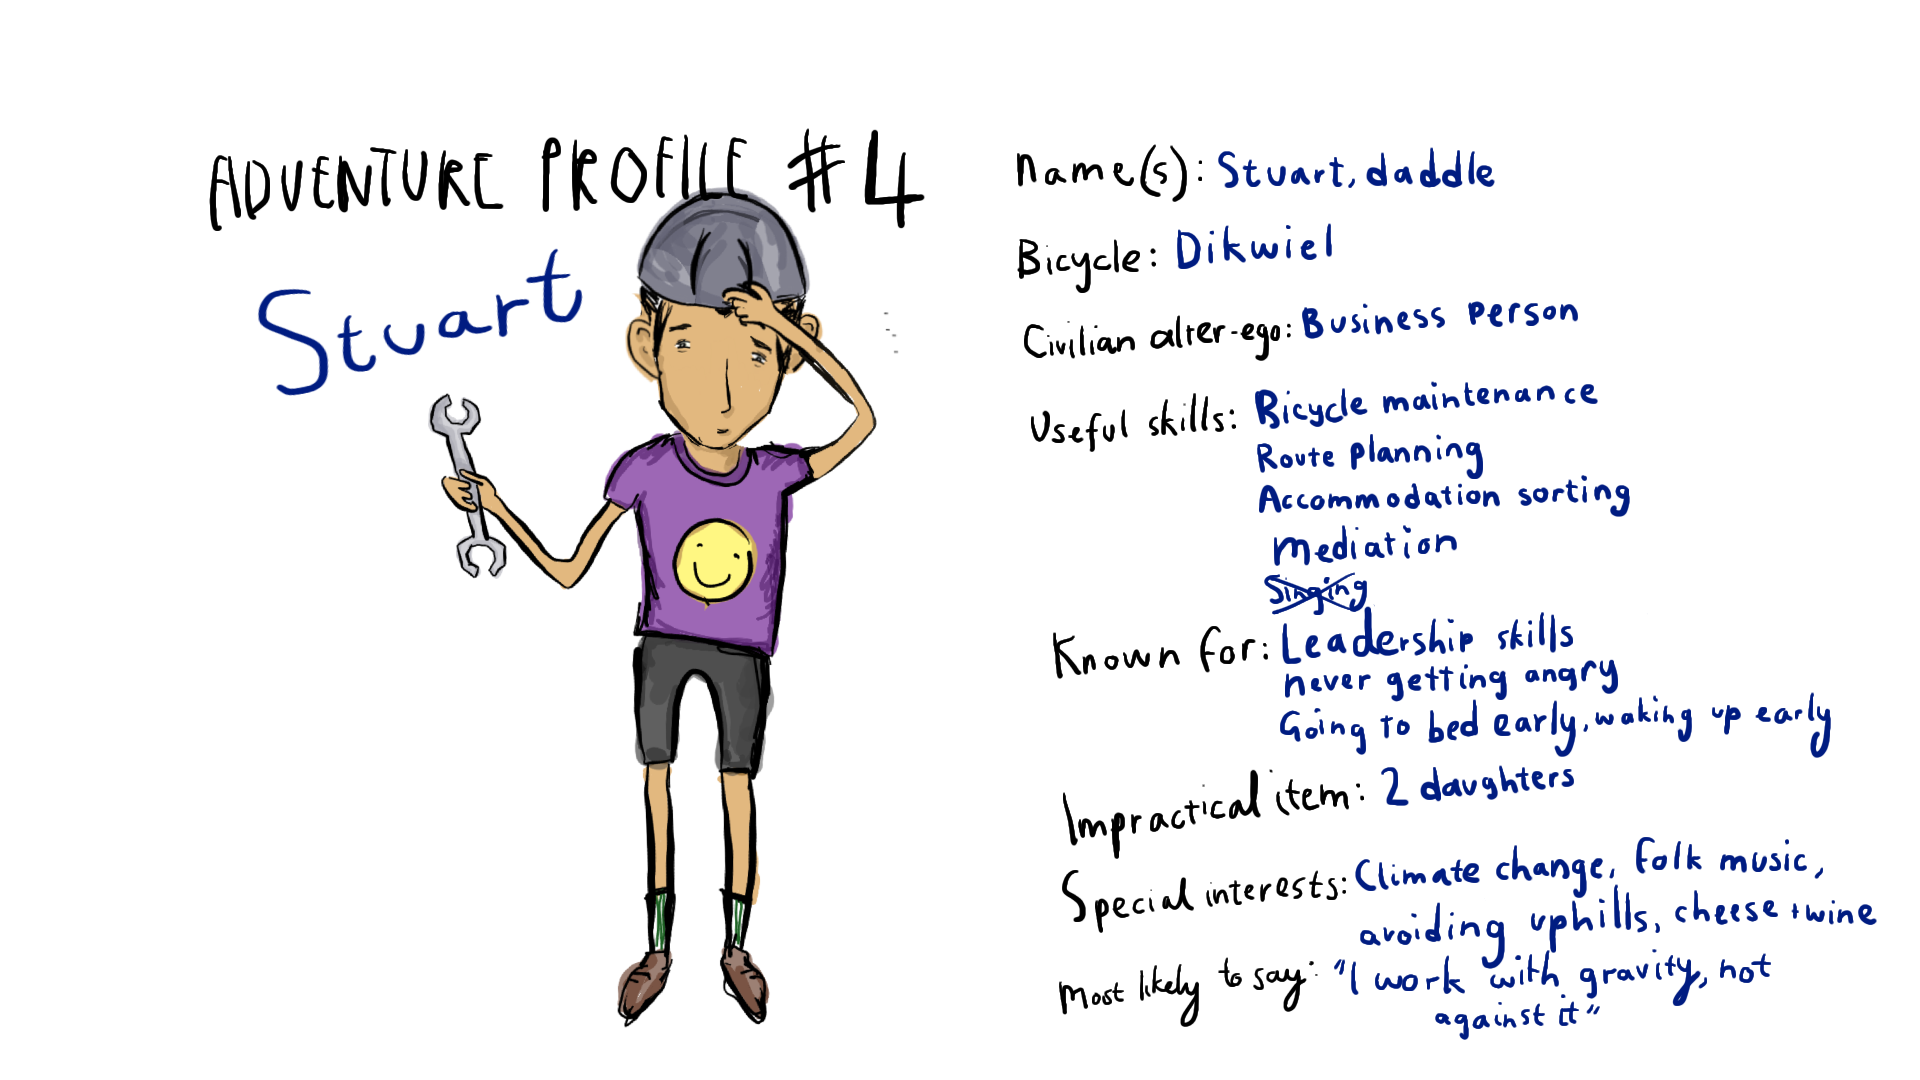 ADVENTURE PROFILE #4
Stuart
Name(s): Stuart, daddle
Bicycle: Dikwiel
Civilian alter-ego: Business Person
Useful skills: Bicycle maintenance
Route planning
Accommodation sorting
Mediation
Singing
Known for: Leadership skills
never getting angry
Going to bed early, waking up early
Impractical item: 2 daughters
Special interests: Climate change, folk music,
avoiding uphills, cheese + wine
Most likely to say: "I work with gravity, not
against it"